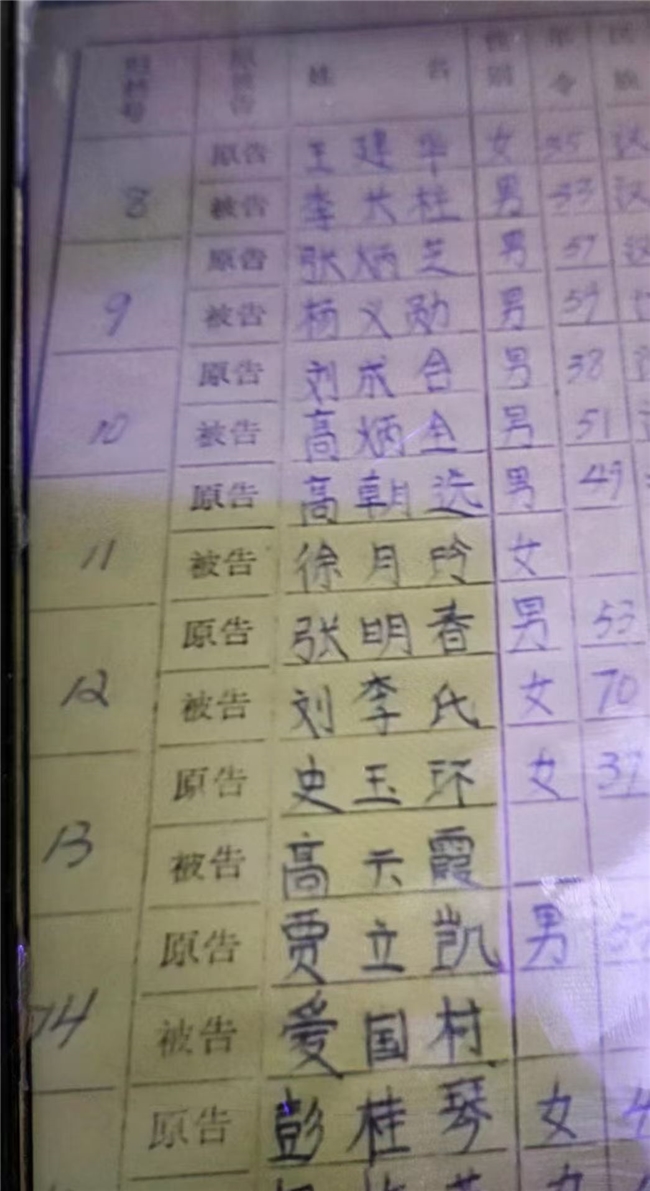 原被告 姓名 性别 年令 民族
8 原告 王建华 女 35 汉
被告 李长柱 男 33 汉
9 原告 张炳芝 男 57 汉
被告 杨义勋 男 59
10 原告 刘成合 男 38
被告 高炳全 男 51
11 原告 高朝选 男 49
被告 徐月玲 女
12 原告 张明春 男 53
被告 刘李氏 女 70
13 原告 史玉环 女 37
被告 高云霞
14 原告 贾立凯 男
被告 爱国村
原告 彭桂琴 女 4